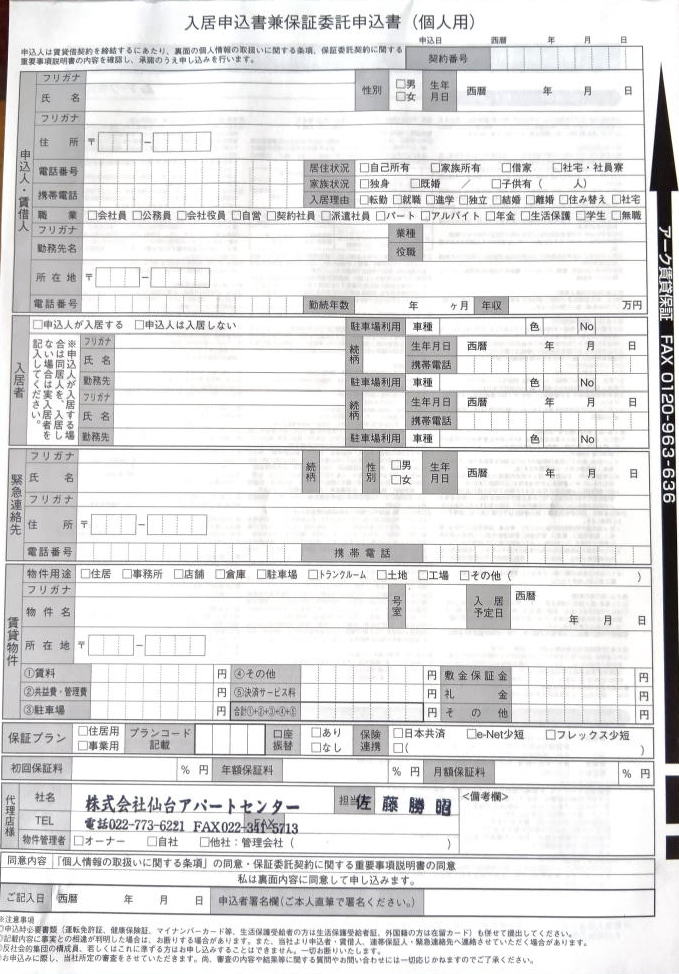 入居申込書兼保証委託申込書（個人用）
申込日 西暦 年 月 日
申込人は賃貸借契約を締結するにあたり、裏面の個人情報の取扱いに関する条項、保証委託契約に関する
重要事項説明書の内容を確認し、承諾のうえ申し込みを行います。
契約番号
申込人・賃借人
フリガナ
氏名 性別 □男 □女 生年月日 西暦 年 月 日
フリガナ
住所 〒 －
電話番号 居住状況 □自己所有 □家族所有 □借家 □社宅・社員寮
家族状況 □独身 □既婚 ／ □子供有（ 人）
携帯電話 入居理由 □転勤 □就職 □進学 □独立 □結婚 □離婚 □住み替え □社宅
職業 □会社員 □公務員 □会社役員 □自営 □契約社員 □派遣社員 □パート □アルバイト □年金 □生活保護 □学生 □無職
フリガナ 業種
勤務先名 役職
所在地 〒 －
電話番号 勤続年数 年 ヶ月 年収 万円
入居者
□申込人が入居する □申込人は入居しない 駐車場利用 車種 色 No
※申込人が入居する場合は同居人を、入居しない場合は実入居者を記入してください。
フリガナ 続柄 生年月日 西暦 年 月 日
氏名 携帯電話
勤務先 駐車場利用 車種 色 No
フリガナ 続柄 生年月日 西暦 年 月 日
氏名 携帯電話
勤務先 駐車場利用 車種 色 No
緊急連絡先
フリガナ
氏名 続柄 性別 □男 □女 生年月日 西暦 年 月 日
フリガナ
住所 〒 －
電話番号 携帯電話
賃貸物件
物件用途 □住居 □事務所 □店舗 □倉庫 □駐車場 □トランクルーム □土地 □工場 □その他（ ）
フリガナ
物件名 号室 入居予定日 西暦 年 月 日
所在地 〒 －
①賃料 円 ④その他 円 敷金保証金 円
②共益費・管理費 円 ⑤決済サービス料 円 礼金 円
③駐車場 円 合計①+②+③+④+⑤ 円 その他 円
保証プラン □住居用 □事業用 プランコード記載 口座振替 □あり □なし 保険連携 □日本共済 □e-Net少短 □フレックス少短 □（ ）
初回保証料 % 円 年額保証料 % 円 月額保証料 % 円
代理店様
社名 株式会社仙台アパートセンター 担当 佐藤勝昭 <備考欄>
TEL 電話022-773-6221 FAX022-341-5713
物件管理者 □オーナー □自社 □他社：管理会社（ ）
同意内容 「個人情報の取扱いに関する条項」の同意・保証委託契約に関する重要事項説明書の同意
私は裏面内容に同意して申し込みます。
ご記入日 西暦 年 月 日 申込者署名欄（ご本人直筆で署名ください。）
※注意事項
○申込時必要書類（運転免許証、健康保険証、マイナンバーカード等、生活保護受給者の方は生活保護受給者証、外国籍の方は在留カード）も併せて提出してください。
○記載内容に事実との相違が判明した場合は、お断りする場合があります。また、当社より申込者・賃借人、連帯保証人・緊急連絡先へ連絡させていただく場合があります。
○反社会的集団の構成員、若しくはこれに準ずる方はお申込みすることはできません。一切お断りいたします。
○お申込みに際し、当社所定の審査をさせていただきます。尚、審査の内容や結果等に関する質問やお問い合わせには一切応じかねますのでご了承ください。
アーク賃貸保証 FAX 0120-963-636